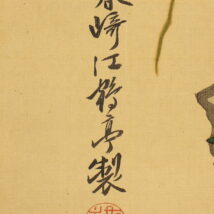 崎江鶴亭製